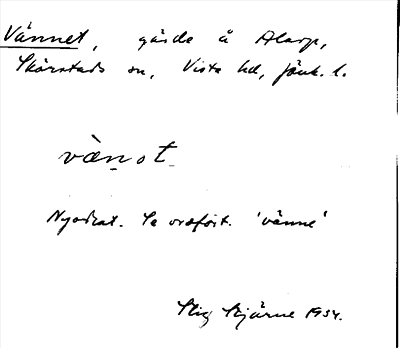 Vännet, gärde å Alarp,
Skärstads sn, Vista hd, Jönk. l.
vànot
Nyodlat. Se ordfört. 'vänne'
Stig Bjärne 1934.